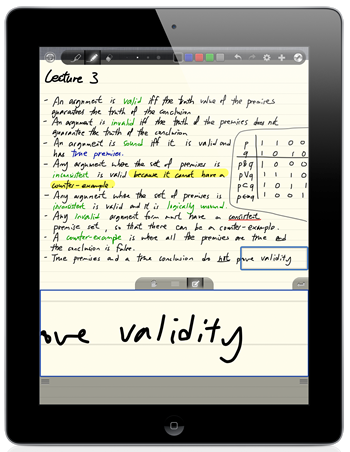 Lecture 3
- An argument is valid iff the truth value of the premises
guarantees the truth of the conclusion
- An argument is invalid iff the truth of the premises does not
guarantee the truth of the conclusion
- An argument is sound iff it is valid and
has true premises.
- Any argument where the set of premises is
inconsistent is valid because it cannot have a
counter-example.
- Any argument where the set of premises is
inconsistent is valid and it is logically unsound.
- Any invalid argument form must have a consistent
premise set, so that there can be a counter-example.
- A counter-example is where all the premises are true and
the conclusion is false.
- True premises and a true conclusion do not prove validity
p 1 1 0 0
q 1 0 1 0
ove validity